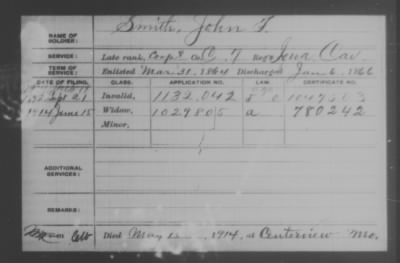 NAME OF SOLDIER: Smith, John F.
SERVICE: Late rank, Corp'l Co. C, 7 Reg't Iowa Cav
TERM OF SERVICE: Enlisted Mar. 31, 1864 Discharged Jan 6, 1866
DATE OF FILING. CLASS. APPLICATION NO. LAW. CERTIFICATE NO.
Sept 21 Invalid, 1132.042
1914 June 15 Widow, 1029805 a 780242
Minor,
ADDITIONAL SERVICES:
REMARKS:
Died May 1914, at Centerview Mo.